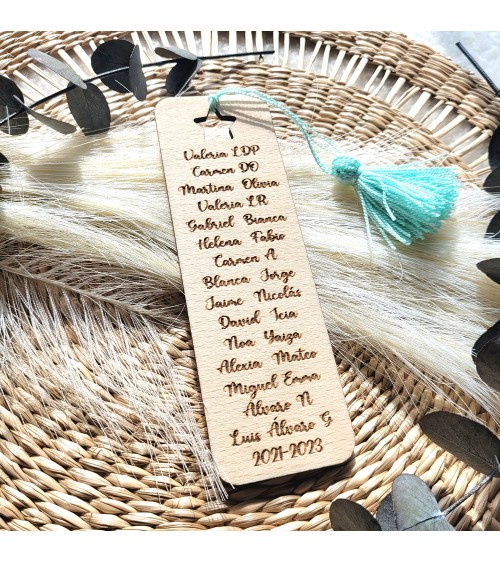 Valeria LDP
Carmen DO
Martina Olivia
Valeria LR
Gabriel Bianca
Helena Fabio
Carmen A
Blanca Jorge
Jaime Nicolás
David Icia
Noa Yaiza
Alexia Mateo
Miguel Emma
Álvaro N
Luis Álvaro G
2021-2023